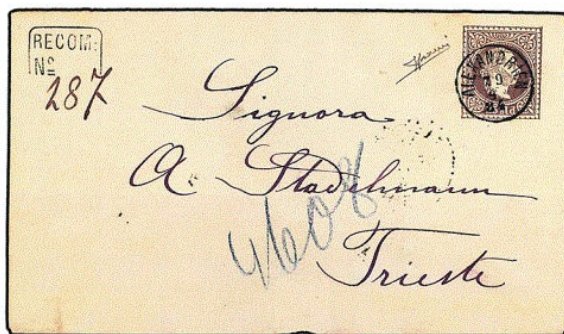 RECOM:
Nº
287
ALEXANDRIEN
Signora
A. Stadelmann
4608
Trieste